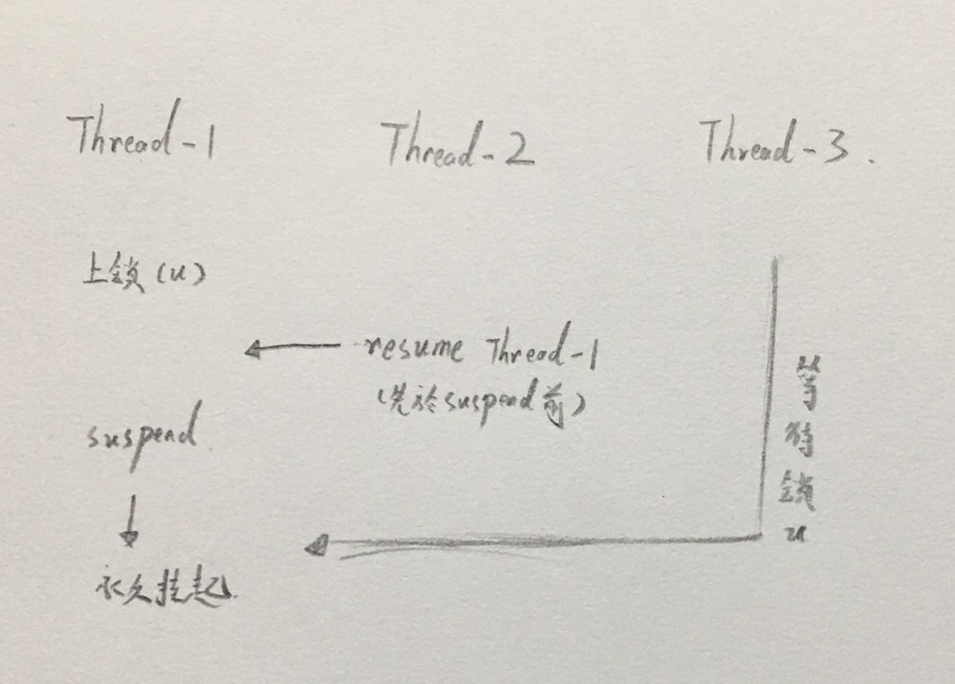 Thread-1
Thread-2
Thread-3.
上锁(u)
resume Thread-1
(先於suspend前)
suspend.
等待锁u
永久挂起.